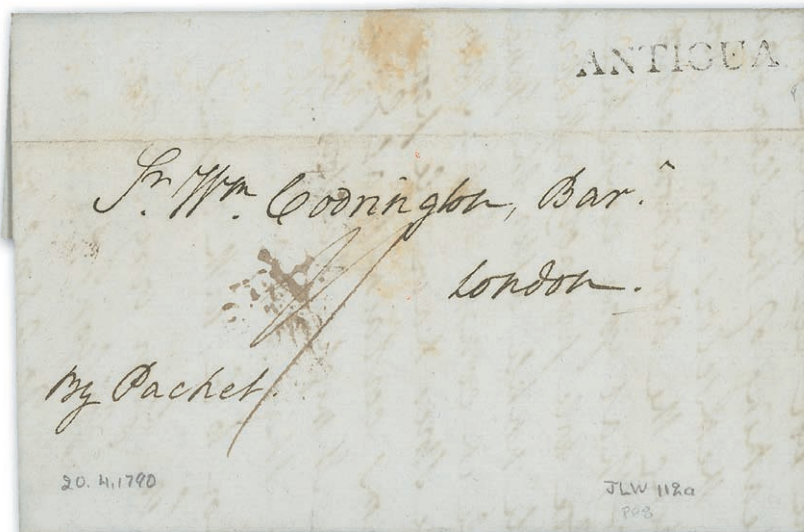 ANTIGUA
Sr. Wm. Codrington, Bar.^t
London.
By Packet.
20.4.1790
JLW 112a